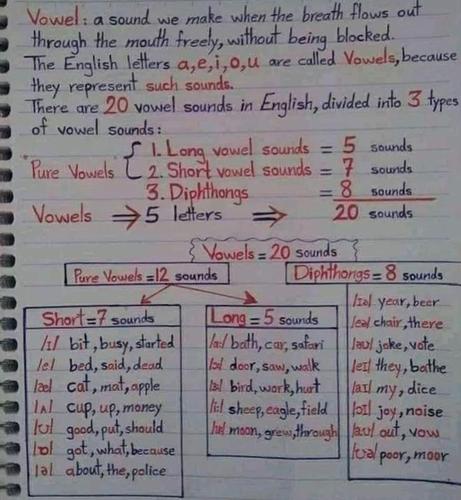 Vowel: a sound we make when the breath flows out
through the mouth freely, without being blocked.
The English letters a,e,i,o,u are called Vowels, because
they represent such sounds.
There are 20 vowel sounds in English, divided into 3 types
of vowel sounds:
1. Long vowel sounds = 5 sounds
Pure Vowels 2. Short vowel sounds = 7 sounds
3. Diphthongs = 8 sounds
Vowels ⇒ 5 letters ⇒ 20 sounds
Vowels = 20 sounds
Pure Vowels = 12 sounds
Diphthongs = 8 sounds
Short = 7 sounds
/ɪ/ bit, busy, started
/e/ bed, said, dead
/æ/ cat, mat, apple
/ʌ/ cup, up, money
/ʊ/ good, put, should
/ɒ/ got, what, because
/ə/ about, the, police
Long = 5 sounds
/a:/ bath, car, safari
/ɔ:/ door, saw, walk
/ɜ:/ bird, work, hurt
/i:/ sheep, eagle, field
/u:/ moon, grew, through
/ɪə/ year, beer
/eə/ chair, there
/əʊ/ joke, vote
/eɪ/ they, bathe
/aɪ/ my, dice
/ɔɪ/ joy, noise
/aʊ/ out, vow
/ʊə/ poor, moor